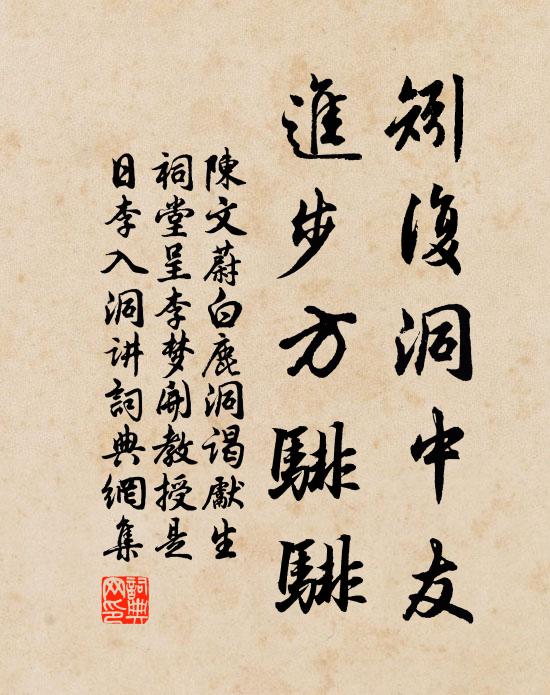 矧復洞中友
進步方騑騑
陳文蔚白鹿洞謁獻生
祠堂呈李梦開教授是
日李入洞讲詞典網集
詞典網印